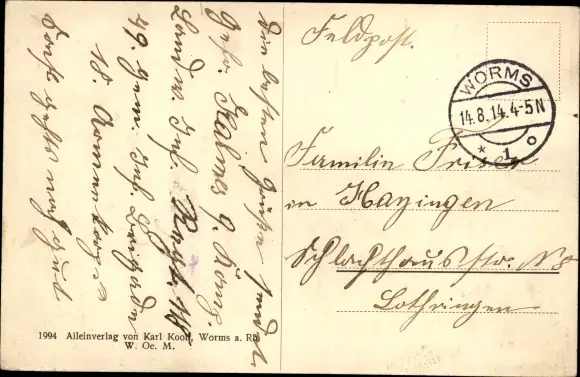 Die besten Grüße sendet
Gefr. Heines g. König.
Landw. Inf. Regt. 118
49. gem. Inf. Brigade
18. Armeekorps
Feldpost.
WORMS
14.8.14.4-5N
* 1 o
Familie Friser
in Hayingen
Schlachthausstr. No
Lothringen
1994 Alleinverlag von Karl Kooß, Worms a. Rh.
W. Oe. M.